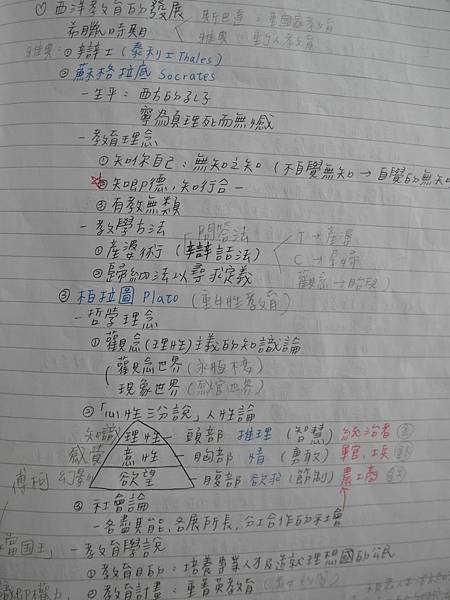 ① 西洋教育的發展
希臘時期 斯巴達：軍國教育
雅典：
雅典：①辯士 (泰利士Thales)
②蘇格拉底 Socrates
－生平：西方的孔子
寧為真理死而無憾
－教育理念
①知你自己：無知之知 (不自覺無知→自覺的無知
②知即德，知行合一
③有教無類
－教學方法 問答法
①產婆術 (辯詰法) T→產婆
②歸納法以尋求定義 C→孕婦
觀念→胎兒)
③柏拉圖 Plato (重中性教育)
－哲學理念
①觀念(理性)主義的知識論
觀念世界 (永恆不變)
現象世界 (感官世界)
②「心性三分說」人性論
知識 理性－頭部 推理 (智慧) 統治者 金
感覺 意性－胸部 情 (勇敢) 軍官、兵 銀
幻想 欲望－腹部 欲求 (節制) 農工商
③社會論
－各盡其能，各展所長，分工合作的社會
－教育學說
①教育目的：培養專業人才及造就理想國的公民
②教育計畫：重菁英教育